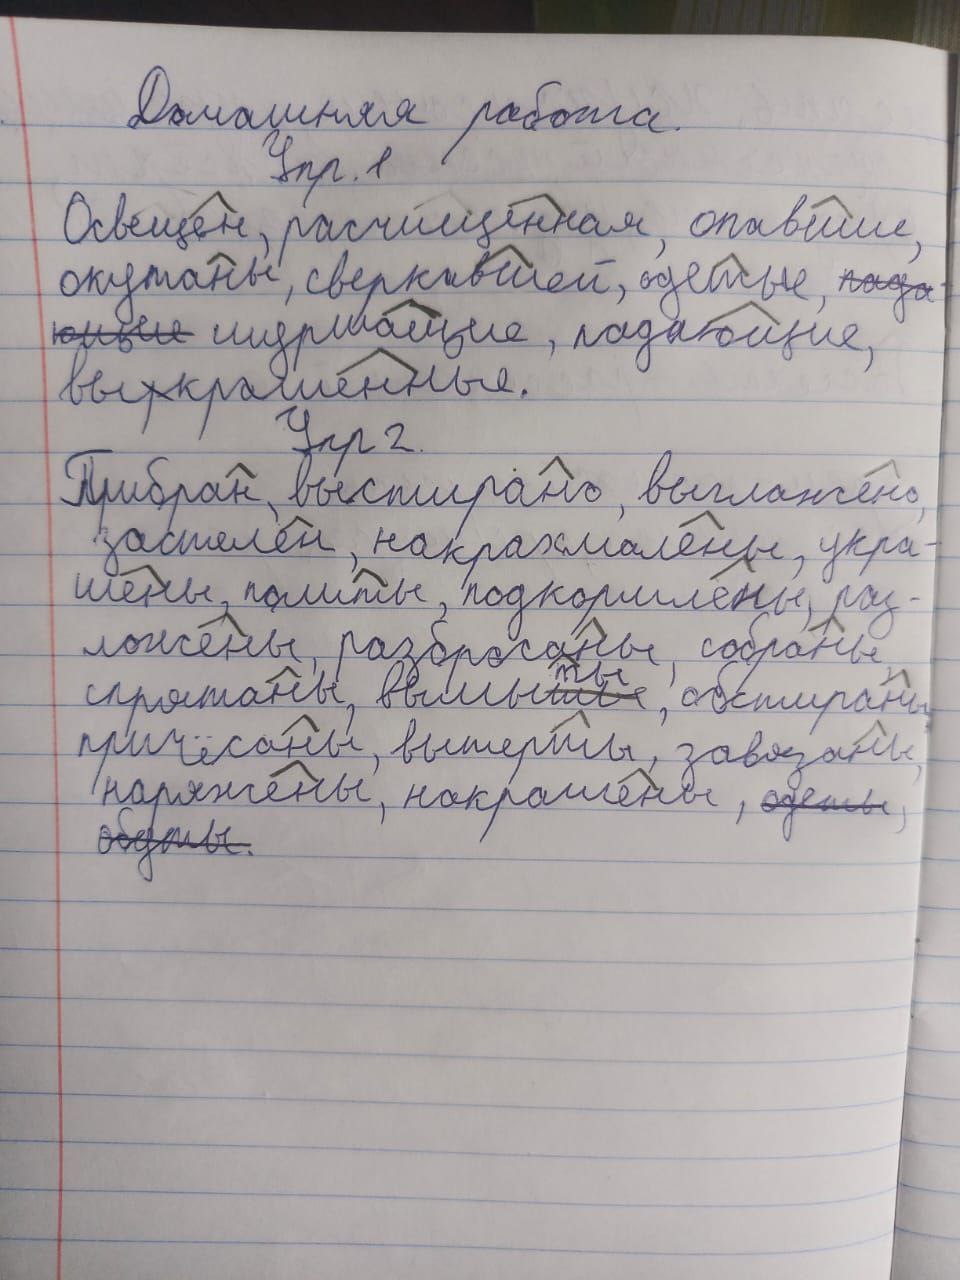 Домашняя работа.
Упр. 1
Освещен, расчищенная, опавшие,
окутаны, сверкавшей, одетые, пада-
ющие шуршащие, падающие,
выкрашенные.
Упр 2.
Прибран, выстирано, выглажено,
застелен, накрахмалены, укра-
шены, политы, подкормлены, раз-
ложены, разбросаны, собраны,
спрятаны, вымыты, обстираны,
причёсаны, вытерты, завязаны,
наряжены, накрашены, одеты,
обуты.